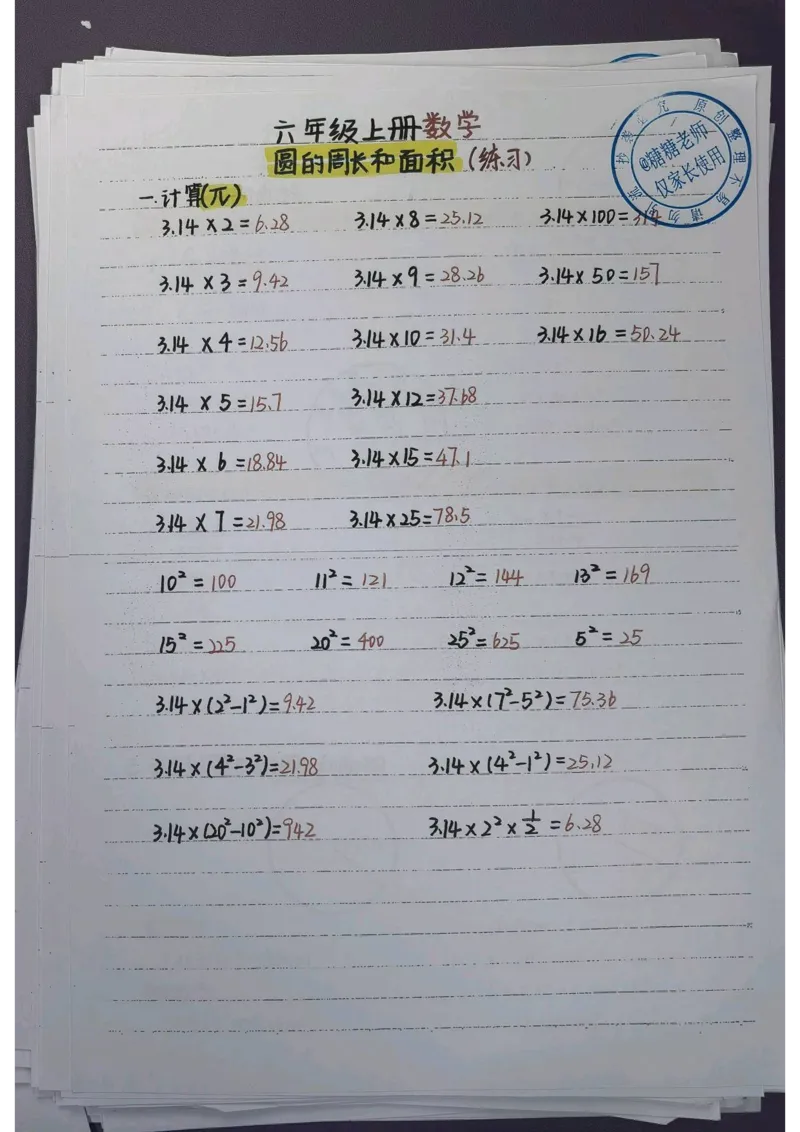 六年级上册数学
圆的周长和面积(练习)
@糖糖老师
仅家长使用
一.计算(π)
3.14×2=6.28 3.14×8=25.12 3.14×100=314
3.14×3=9.42 3.14×9=28.26 3.14×50=157
3.14×4=12.56 3.14×10=31.4 3.14×16=50.24
3.14×5=15.7 3.14×12=37.68
3.14×6=18.84 3.14×15=47.1
3.14×7=21.98 3.14×25=78.5
10²=100 11²=121 12²=144 13²=169
15²=225 20²=400 25²=625 5²=25
3.14×(2²-1²)=9.42 3.14×(7²-5²)=75.36
3.14×(4²-3²)=21.98 3.14×(4²-1²)=25.12
3.14×(20²-10²)=942 3.14×2²×1/2=6.28